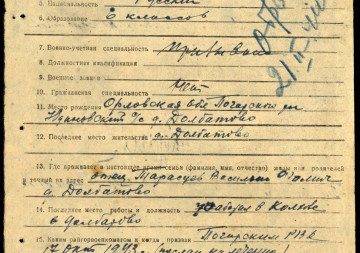 5. Национальность Русский
6. Образование 6 классов
7. Военно-учетная специальность
8. Должностная квалификация
9. Военное звание
10. Гражданская специальность Нет
11. Место рождения Орловская обл Погарский р-н
с/с д. Долбатово
12. Последнее место жительства д. Долбатово
13. Где проживает в настоящее время семья (фамилия, имя, отчество) жены или родителей
и точный их адрес отец
д. Долбатово
14. Последнее место работы и должность работал в Колхозе
в Долбатово
15. Каким райвоенкоматом и когда призван Погарским РВК
17 окт 1943